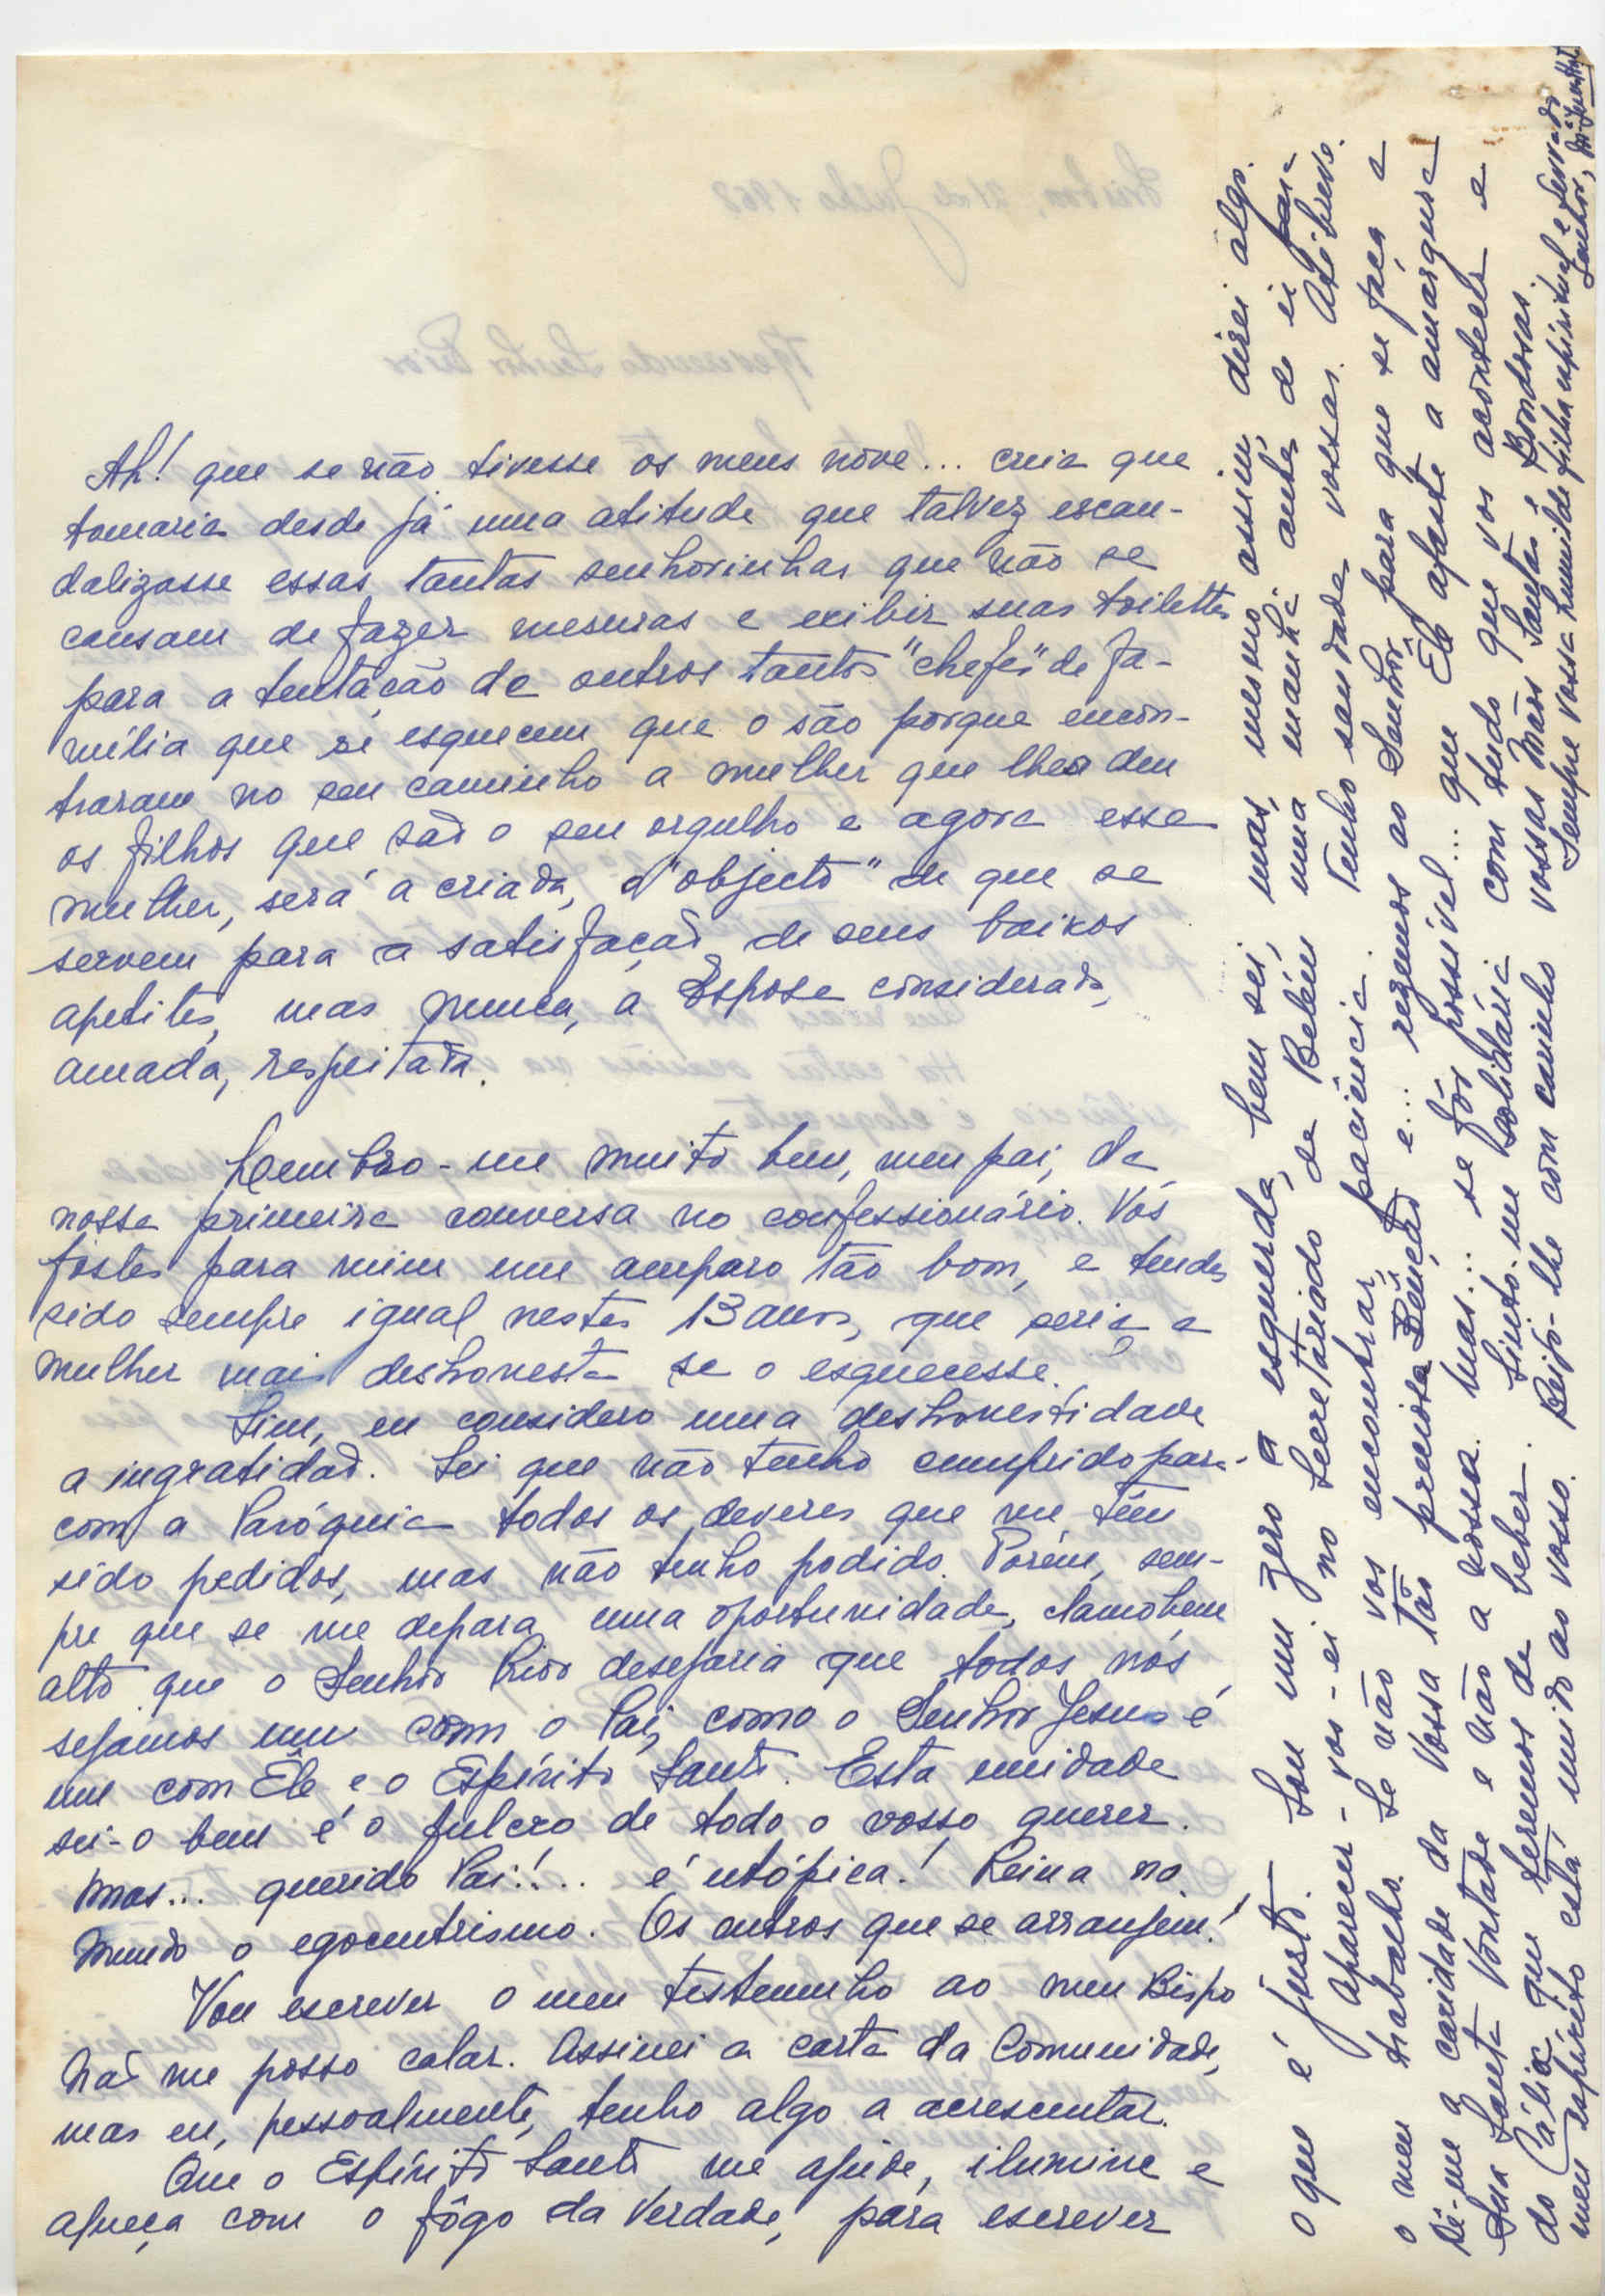 Ah! que se não tivesse os meus nove... creia que
tomaria desde já uma atitude que talvez escan-
dalizasse essas tantas senhorinhas que não se
cansam de fazer mesuras e exibir suas toilettes
para a tentação de outros tantos "chefes" de fa-
mília que se esquecem que o são porque encon-
traram no seu caminho a mulher que lhes deu
os filhos que são o seu orgulho e agora essa
mulher, será a criada, o "objecto" de que se
servem para a satisfação de seus baixos
apetites, mas nunca, a Esposa considerada,
amada, respeitada.
Lembro-me muito bem, meu pai, da
nossa primeira conversa no confessionário. Vós
fostes para mim um amparo tão bom, e tendes
sido sempre igual nestes 13 anos, que seria a
mulher mais deshonesta se o esquecesse.
Sim, eu considero uma deshonestidade
a ingratidão. Sei que não tenho cumprido para-
com a Paróquia todos os deveres que me têm
sido pedidos, mas não tenho podido. Porém, sem-
pre que se me depara uma oportunidade, clamo bem
alto que o Senhor Prior desejaria que todos nós
sejamos um com o Pai, como o Senhor Jesus é
um com Êle e o Espírito Santo. Esta unidade
sei-o bem é o fulcro de todo o vosso querer.
Mas... querido Pai!... é utópica! Reina no
Mundo o egocentrismo. Os outros que se arranjem!
Vou escrever o meu testemunho ao meu Bispo
Não me posso calar. Assinei a carta da Comunidade,
mas eu, pessoalmente, tenho algo a acrescentar.
Que o Espírito Santo me ajude, ilumine e
aqueça com o fôgo da Verdade, para escrever
o que é justo. Sou um zero à esquerda, bem sei, mas, mesmo assim, direi algo.
Aparecer-vos-ei no Secretariado de Belém uma manhã antes de ir para
o meu trabalho. Se não vos encontrar, paciência. Tenho saudades vossas. Até breve.
Dê-me a caridade da Vossa tão preciosa Bênção e... rezemos ao Senhor para que se faça a
Sua Santa Vontade e não a nossa. Mas... se fôr possível... que Ele afaste a amargura
do Cálix que teremos de beber. Sinto-me solidária com tudo que vos acontecer e
meu espírito está unido ao vosso. Beijo-lhe com carinho vossas Mãos Santas e Bondosas.
Sempre vossa humilde filha espiritual e serva do
Senhor,